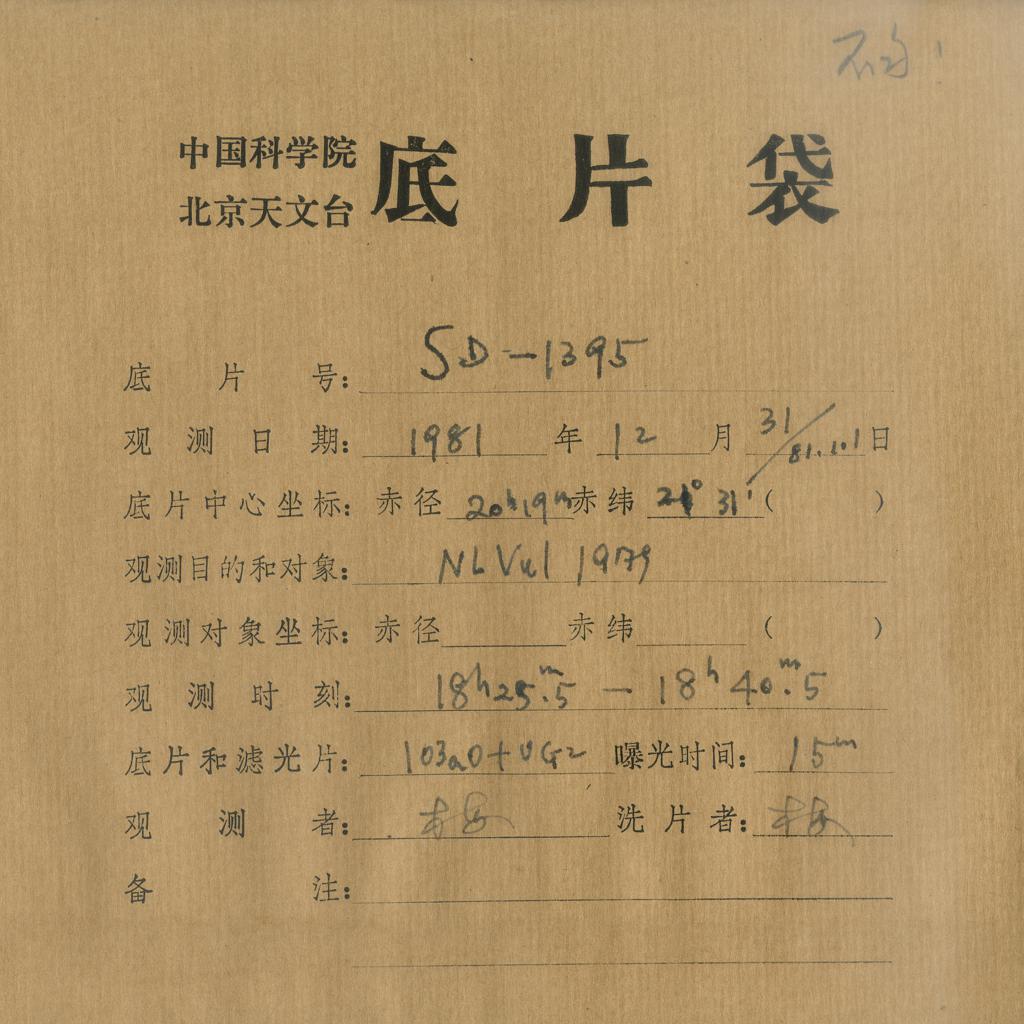 中国科学院
北京天文台
底片袋
底片号: SD-1395
观测日期: 1981 年 12 月 31/81.1.1 日
底片中心坐标: 赤径 20h19m 赤纬 21° 31' ( )
观测目的和对象: NL Vul 1979
观测对象坐标: 赤径 赤纬 ( )
观测时刻: 18h25m.5 — 18h40m.5
底片和滤光片: 103aO+UG2 曝光时间: 15m
观测者: 梅 洗片者: 梅
备注: